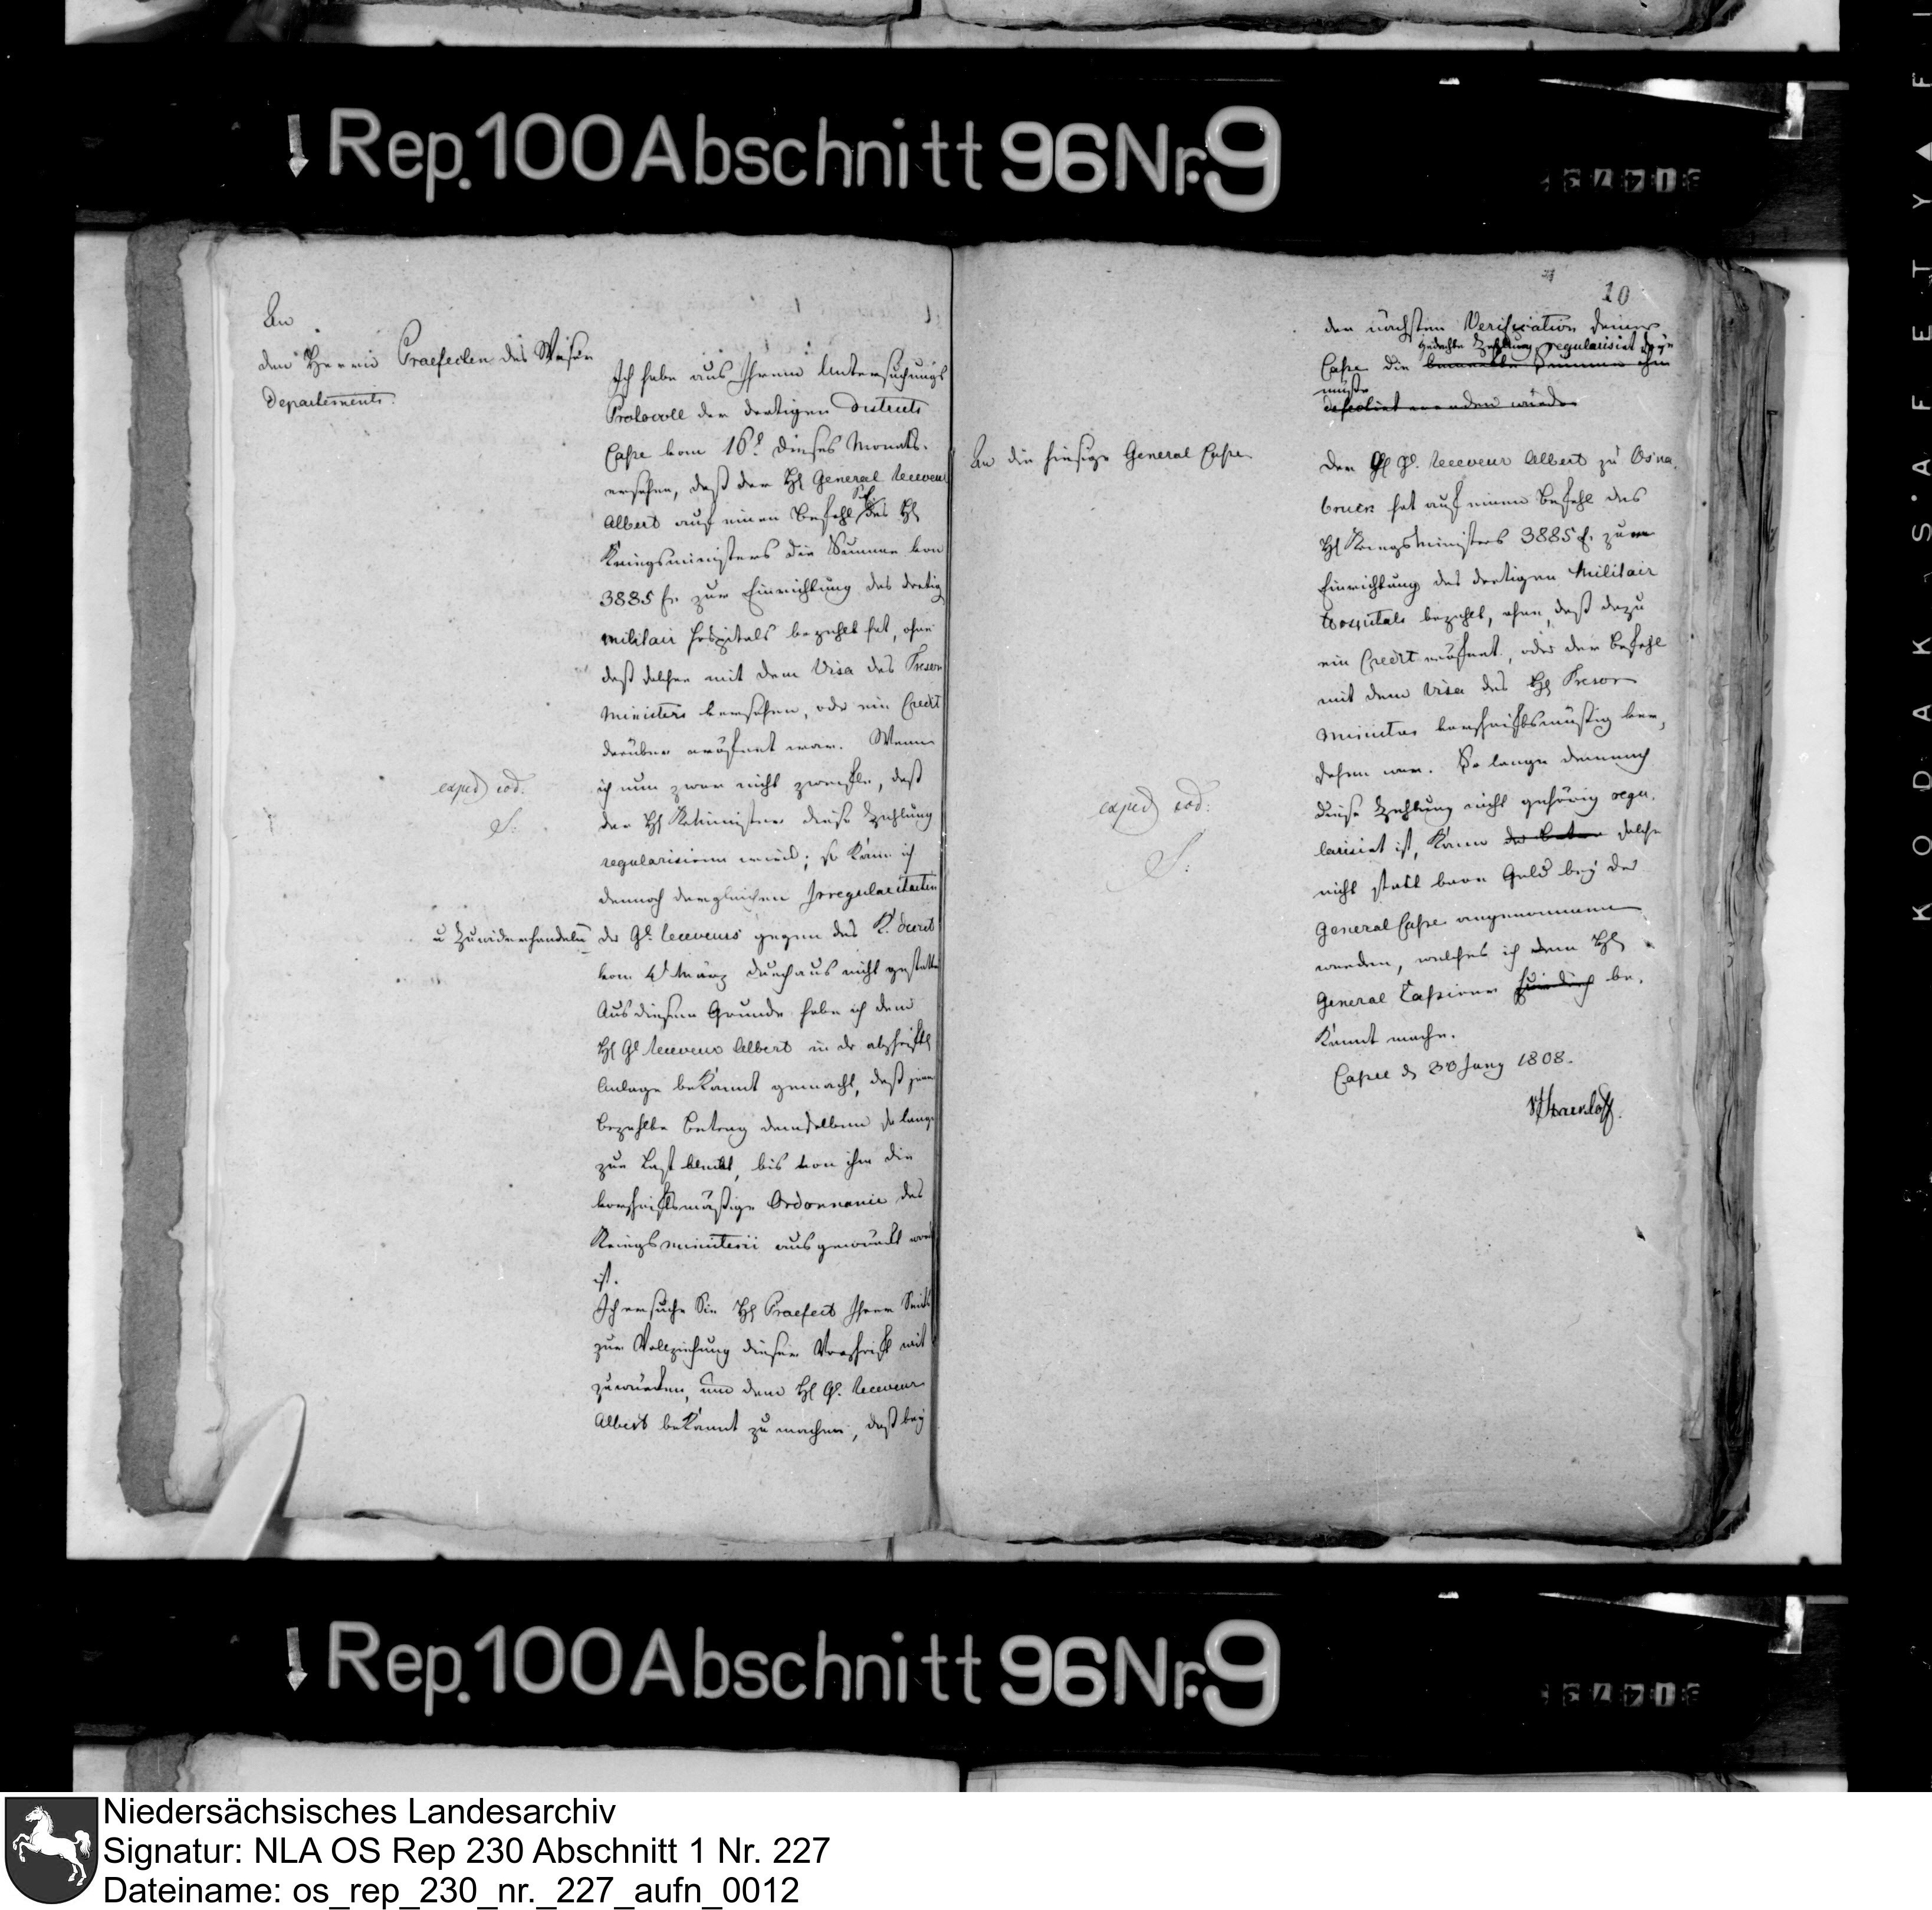 Rep. 100 Abschnitt 96 Nr. 9
An
den Herrn Praefecten des Weser
Departements.
Ich habe aus Ihrem Untersuchungs
Protocoll der dortigen Districts
Casse vom 16t dieses Monats
ersehen, daß der H General Receveur
Albert auf einen Befehl des H
Kriegsministers die Summe von
3885 fr. zur Einrichtung des dortig
militair Hospitals bezahlt hat, ohne
daß solcher mit dem Visa des Tresor
Ministers versehen, oder ein Credit
darüber eröfnet war. Wenn
ich nun zwar nicht zweifle, daß
der H Kr.minister diese Zahlung
regularisiren wird; so kann ich
dennoch dergleichen Irregularitaeten
u Zuwiderhandeln
der Gl. Receveurs gegen das K. Decret
vom 4t März durchaus nicht gestatten
Aus diesem Grunde habe ich dem
H Gl Receveur Albert in der abschriftl
Anlage bekannt gemacht, daß jener
bezahlte Betrag demselben so lange
zur Last bleibt, bis von ihm die
vorschriftsmäßige Ordonnance des
Kriegsministerii ausgewürckt word
ist.
Ich ersuche Sie H Praefect Ihrer Seits
zur Vollziehung dieser Vorschrift mit
zuwürken, und dem H Gl. Receveur
Albert bekannt zu machen, daß bey
exped eod.
S:
10
der nächsten Verification seiner
gedachte Zahlung regularisirt seyn
Casse die bemerkte Summe ihm
müße
defectirt werden würde
An die hiesige General Casse
Der H Gl. Receveur Albert zu Osna,
bruck hat auf einen Befehl des
H Kriegsministers 3885 fr. zur
Einrichtung des dortigen Militair
Hospitals bezahlt, ohne daß dazu
ein Credit eröfnet, oder der Befehl
mit dem Visa des H Tresor
Ministers vorschriftsmäßig ver,
sehen war. So lange demnach
diese Zahlung nicht gehörig regu,
larisirt ist, kann solche
nicht statt baar Geld bey der
General Casse angenommen
werden, welches ich dem H
General Cassirer hiedurch be,
kannt mache.
Cassel d 30 Juny 1808.
exped eod:
S:
Rep. 100 Abschnitt 96 Nr. 9
KODAK S'AFETY
Niedersächsisches Landesarchiv
Signatur: NLA OS Rep 230 Abschnitt 1 Nr. 227
Dateiname: os_rep_230_nr._227_aufn_0012